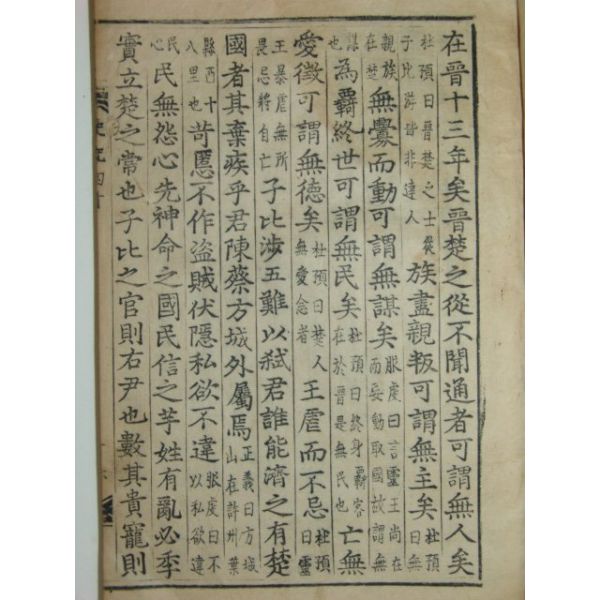 在晉十三年矣晉楚之從不聞通者可謂無人矣
杜預曰晉楚之士從子比游皆非達人族盡親叛可謂無主矣杜預曰無
親族在楚無釁而動可謂無謀矣服虔曰言靈王尚在而妄動取國故謂無
謀也為覇終世可謂無民矣杜預曰終身覇客在於晉是無民也亡無
愛徵可謂無德矣杜預曰楚人無愛念者王虐而不忌杜預曰靈
王暴虐無所畏忌將自亡子比涉五難以弒君誰能濟之有楚
國者其棄疾乎君陳蔡方城外屬焉正義曰方城山在許州葉
縣西十八里也苛慝不作盜賊伏隱私欲不違服虔曰不以私欲違
民心民無怨心先神命之國民信之芋姓有亂必季
實立楚之常也子比之官則右尹也數其貴寵則